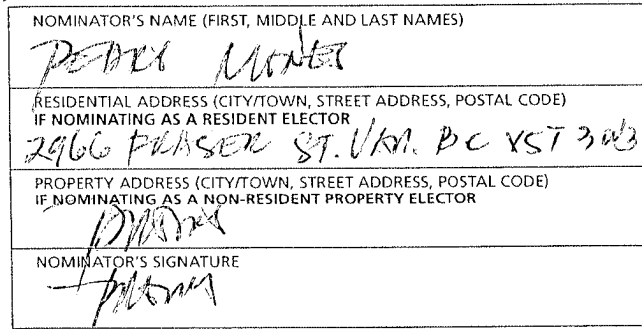 NOMINATOR'S NAME (FIRST, MIDDLE AND LAST NAMES)
RESIDENTIAL ADDRESS (CITY/TOWN, STREET ADDRESS, POSTAL CODE)
IF NOMINATING AS A RESIDENT ELECTOR
2966 FRASER ST. VAN. BC V5T
PROPERTY ADDRESS (CITY/TOWN, STREET ADDRESS, POSTAL CODE)
IF NOMINATING AS A NON-RESIDENT PROPERTY ELECTOR
NOMINATOR'S SIGNATURE